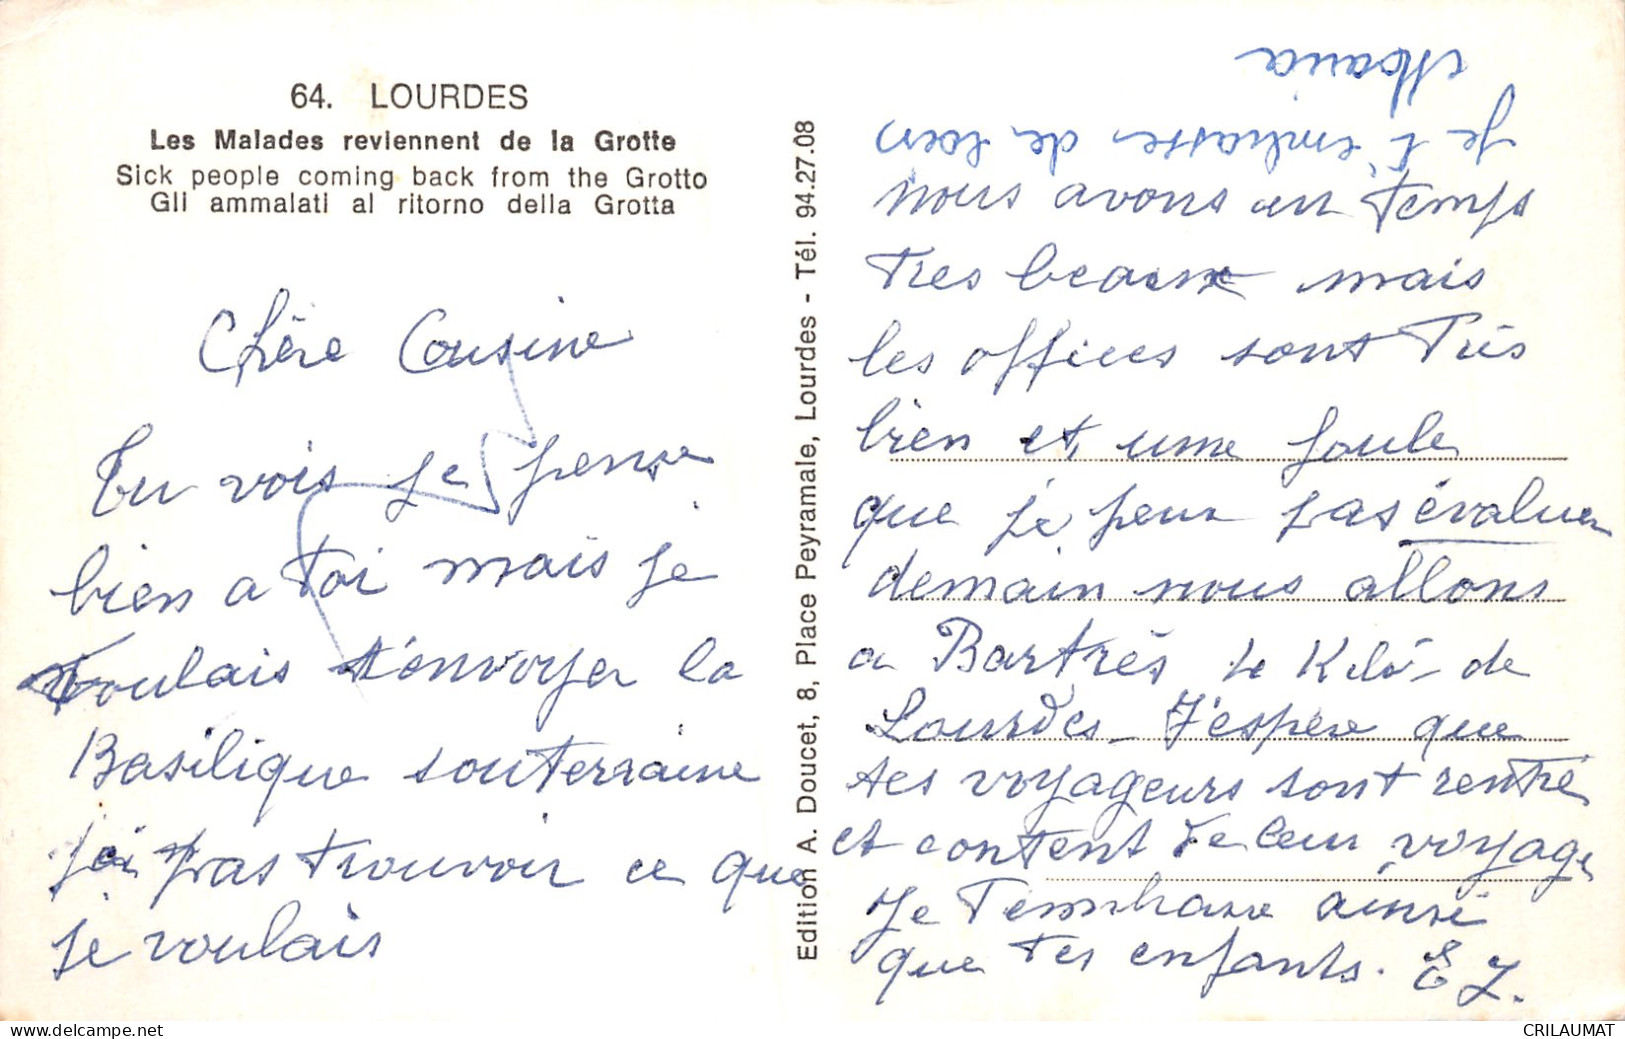 64. LOURDES
Les Malades reviennent de la Grotte
Sick people coming back from the Grotto
Gli ammalati al ritorno della Grotta
Chère Cousine
Tu vois je pense
bien a toi mais je
voulais t'envoyer la
Basilique souterraine
j'ai pas trouvoir ce que
je voulais
Edition A. Doucet, 8, Place Peyramale, Lourdes - Tél. 94.27.08
nous avons un temps
tres beaux mais
les offices sont très
bien et une foule
que je peux pas évaluer
demain nous allons
a Bartrès 4e Kilo- de
Lourdes - J'espère que
tes voyageurs sont rentré
et content de leur voyage
Je t'embrasse ainsi
que tes enfants. E J.
Je t'embrasse de loin
Maria
CRILAUMAT